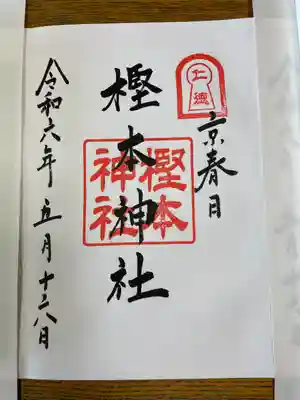 仁徳
京春日
樫本神社
樫本
神社
令和六年五月十六日